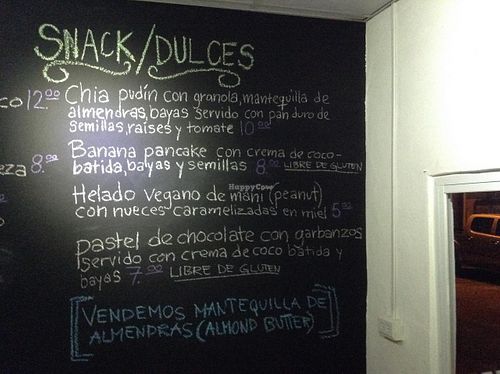 SNACK/DULCES
co 12.00 Chia pudín con granola, mantequilla de
almendras, bayas servido con pan duro de
semillas, raises y tomate 10.00
Banana pancake con crema de coco-
eza 8.00 batida, bayas y semillas 8.00 LIBRE DE GLUTEN
HappyCow
Helado vegano de mani (peanut)
con nueces caramelizadas en miel 5.00
pastel de chocolate con garbanzos
servido con crema de coco batida y
bayas 7.00 LIBRE DE GLUTEN
VENDEMOS MANTEQUILLA DE
ALMENDRAS (ALMOND BUTTER)